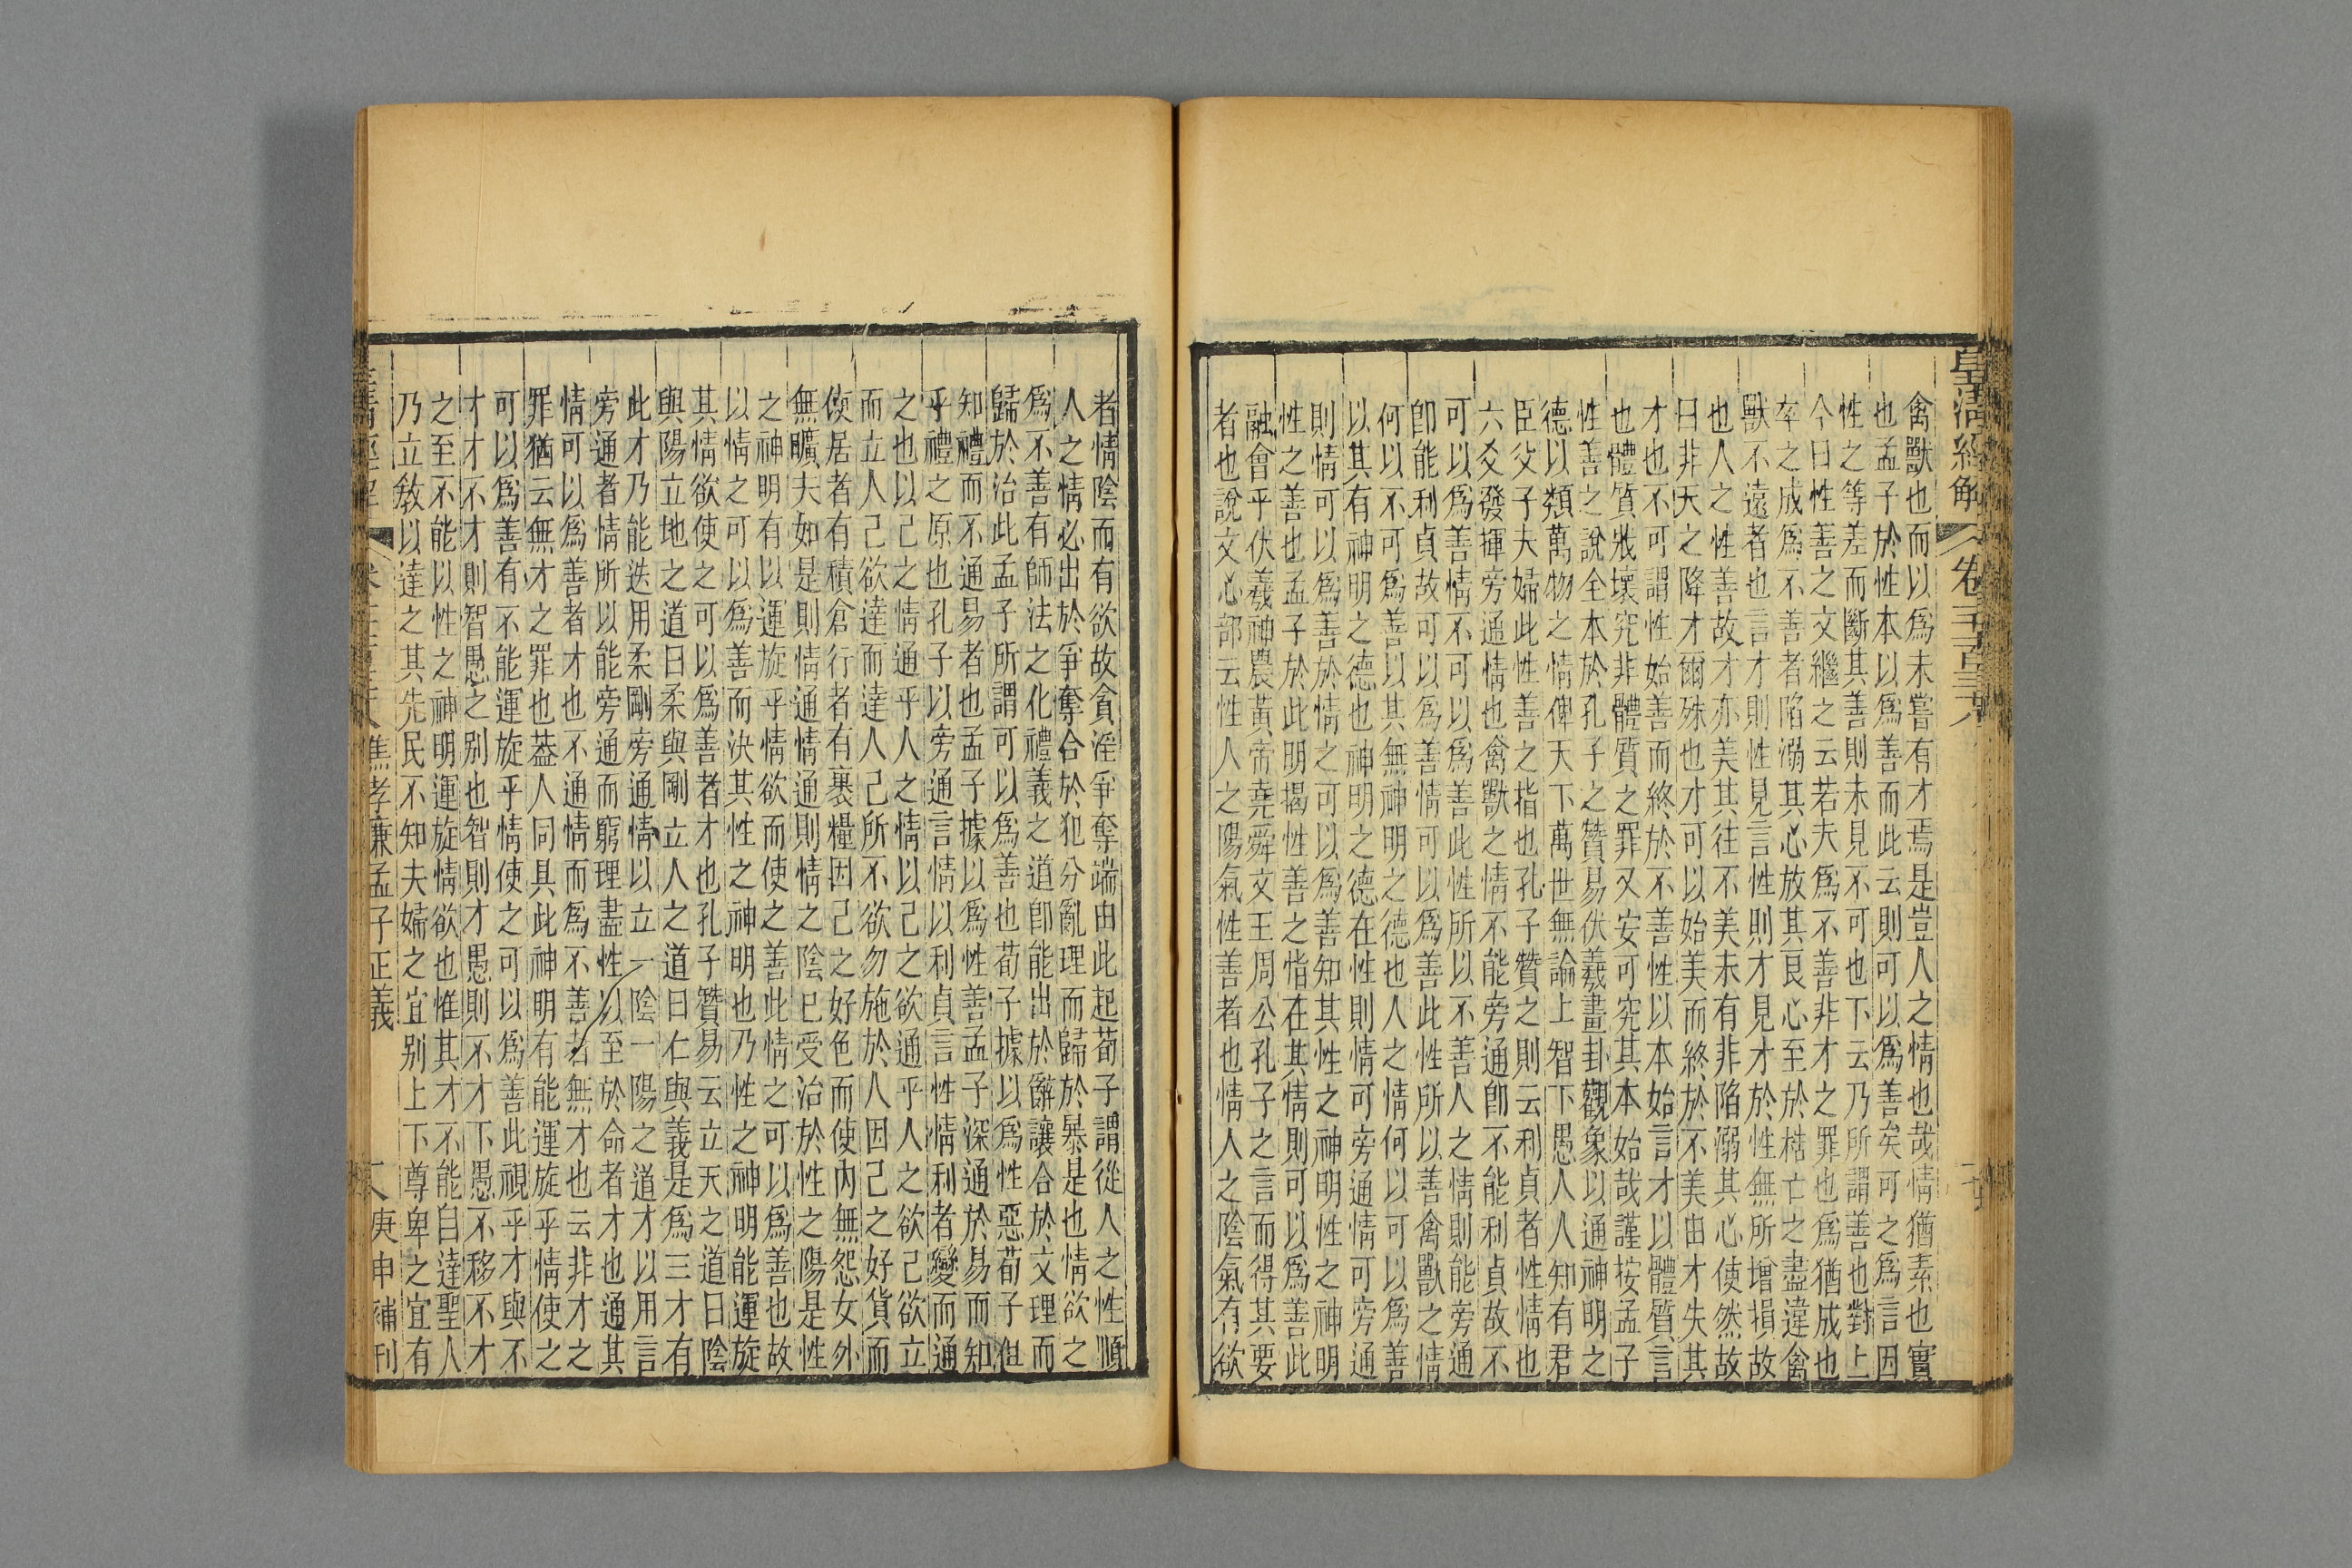 皇清經解
卷千一百三十八
禽獸也而以爲未嘗有才焉是豈人之情也哉情猶素也實
也孟子於性本以爲善而此云則可以爲善矣可之爲言因
性之等差而斷其善則未見不可也下云乃所謂善也對上
今曰性善之文繼之云若夫爲不善非才之罪也爲猶成也
卒之成爲不善者陷溺其心放其良心至於梏亡之盡違禽
獸不遠者也言才則性見言性則才見才於性無所增損故
也人之性善故才亦美其往不美未有非陷溺其心使然故
曰非天之降才爾殊也才可以始美而終於不美由才失其
才也不可謂性始善而終於不善性以本始言才以體質言
也體質戕壞究非體質之罪又安可究其本始哉謹按孟子
性善之說全本於孔子之贊易伏羲畫卦觀象以通神明之
德以類萬物之情俾天下萬世無論上智下愚人人知有君
臣父子夫婦此性善之指也孔子贊之則云利貞者性情也
六爻發揮旁通情也禽獸之情不能旁通卽不能利貞故不
可以爲善情不可以爲善此性所以不善人之情則能旁通
卽能利貞故可以爲善情可以爲善此性所以善禽獸之情
何以不可爲善以其無神明之德也人之情何以可以爲善
以其有神明之德也神明之德在性則情可旁通情可旁通
則情可以爲善於情之可以爲善知其性之神明性之神明
性之善也孟子於此明揭性善之恉在其情則可以爲善此
融會乎伏羲神農黃帝堯舜文王周公孔子之言而得其要
者也說文心部云性人之陽氣性善者也情人之陰氣有欲
者情陰而有欲故貪淫爭奪端由此起荀子謂從人之性順
人之情必出於爭奪合於犯分亂理而歸於暴是也情欲之
爲不善有師法之化禮義之道卽能出於辭讓合於文理而
歸於治此孟子所謂可以爲善也荀子據以爲性惡荀子但
知禮而不通易者也孟子據以爲性善孟子深通於易而知
乎禮之原也孔子以旁通言情以利貞言性情利者變而通
之也以己之情通乎人之情以己之欲通乎人之欲己欲立
而立人己欲達而達人己所不欲勿施於人因己之好貨而
使居者有積倉行者有裹糧因己之好色而使內無怨女外
無曠夫如是則情通情通則情之陰已受治於性之陽是性
之神明有以運旋乎情欲而使之善此情之可以爲善也故
以情之可以爲善而決其性之神明也乃性之神明能運旋
其情欲使之可以爲善者才也孔子贊易云立天之道曰陰
與陽立地之道曰柔與剛立人之道曰仁與義是爲三才有
此才乃能迭用柔剛旁通情以立一陰一陽之道才以用言
旁通者情所以能旁通而窮理盡性以至於命者才也通其
情可以爲善者才也不通情而爲不善者無才也云非才之
罪猶云無才之罪也蓋人同具此神明有能運旋乎情使之
可以爲善有不能運旋乎情使之可以爲善此視乎才與不
才才不才則智愚之别也智則才愚則不才下愚不移不才
之至不能以性之神明運旋情欲也惟其才不能自達聖人
乃立教以達之其先民不知夫婦之宜别上下尊卑之宜有
皇清經解
焦孝廉孟子正義
庚申補刊